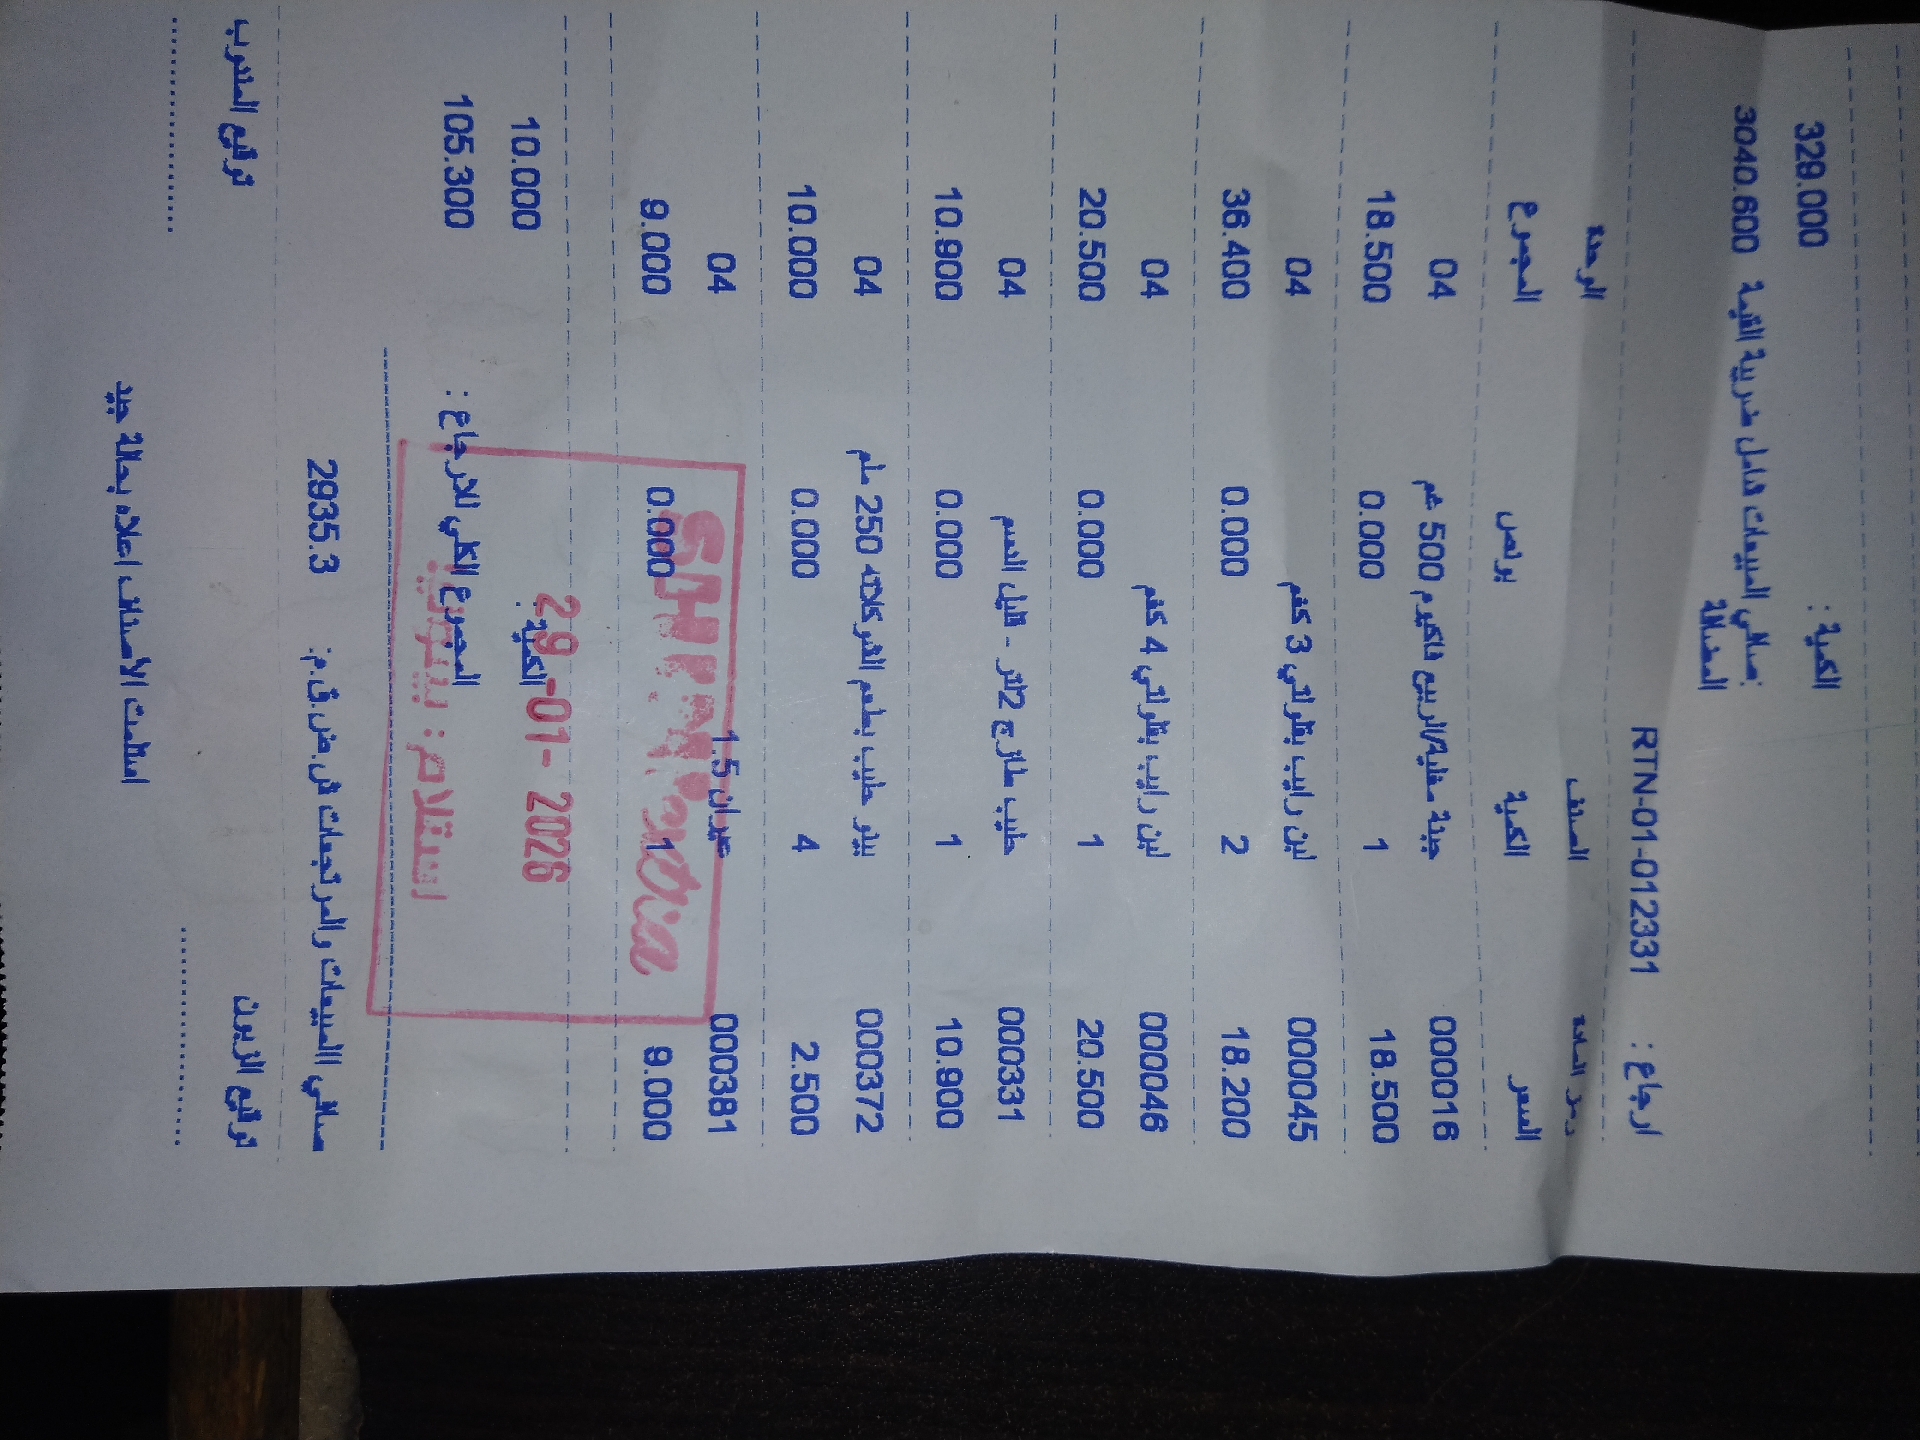 الكمية : 329.000
صافي المبيعات شامل ضريبة القيمة 3040.600
المضافة:
ارجاع : RTN-01-012331
رمز المادة الصنف الوحدة
السعر الكمية بونص المجموع
000016 جبنة مغلية/الربيع فاكيوم 500 غم 04
18.500 1 0.000 18.500
000045 لبن رايب بقلولتي 3 كغم 04
18.200 2 0.000 36.400
000046 لبن رايب بقلولتي 4 كغم 04
20.500 1 0.000 20.500
000331 حليب طازج 2لتر - قليل الدسم 04
10.900 1 0.000 10.900
000372 بينو حليب بطعم الشوكلاته 250 ملم 04
2.500 4 0.000 10.000
000381 عيران 1.5 04
9.000 1 0.000 9.000
الكمية: 10.000
المجموع الكلي للارجاع : 105.300
29-01-2026
استلام :
صافي المبيعات والمرتجعات ش.ض.ق.م: 2935.3
توقيع الزبون توقيع المندوب
.................... ....................
استلمت الأصناف اعلاه بحالة جيد